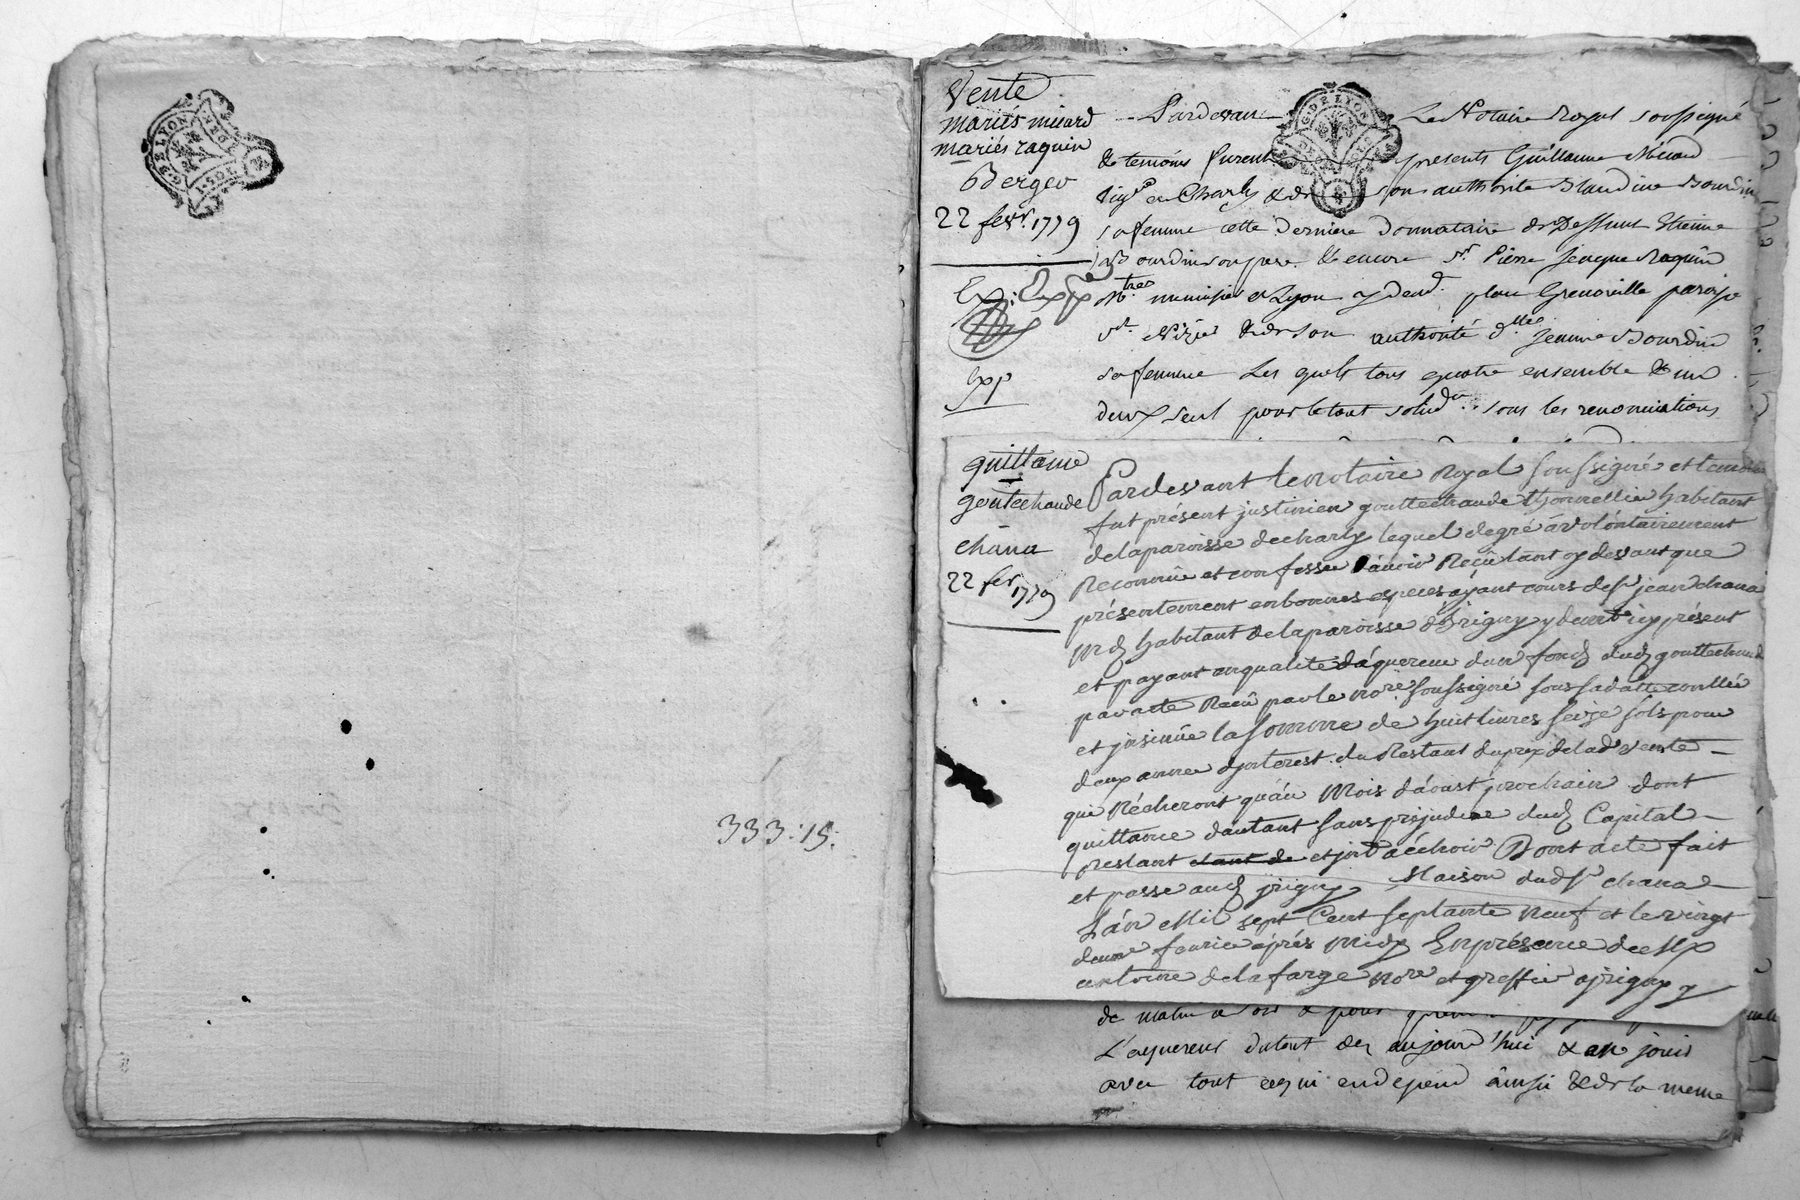 G. DE LYON
333:15:
Vente
mariés miard
mariés raquin
Berger
22 fevr. 1779
Exp
quittance
gouttechaude
chana
22 fer 1779
Pardevant Le Notaire Royal soussigné
G. DE LYON
& temoins furent presents Guillaume
vig. a Charly & de son authorité Blandine Bourdin
sa femme cette derniere donnataire de Deffunt Etienne
Bourdin son pere & encore Sr. Pierre Jacque Raquin
a Lyon y demt. place Grenouille paroisse
St. Nizier & de son authorité dlle Jeanne Bourdin
sa femme Les quels tous quatre ensemble & un
deux seul pour le tout solid. sous les renonciations
Pardevant le notaire Royal soussigné et temoins
fut présent justinien gouttechaude thonnellier habitant
de la paroisse de charly lequel de gré a volóntairement
Reconnu et confessé d'avoir Recû tant cy devant que
présentement en bonnes especes ayant cours de Sr jean chana
md habitant de la paroisse d'Irigny y demt icy présent
et payant en qualité d'áquereur d'un fond dud gouttechaude
par acte Recû par le nore soussigné sous sa datte conllée
et jnsinûe la somme de huit livres seize sols pour
deux année djnterest du Restant du prix de lad vente
qui n'écheront qu'áu Mois d'áoust prochain dont
quittance d'autant sans prejudice dud Capital
restant et jnt a échoir Dont acte fait
et passe aud jrigny Maison dud Sr chana
L'án Mil sept Cent septante neuf et le vingt
deux fevrier áprés midy En présence de Me
antoine delafarge nore et greffier a jrigny y
de
L'aquereur du tout dez aujourd'hui & en jouir
avec tout ce qui en depend áinsi & de la meme